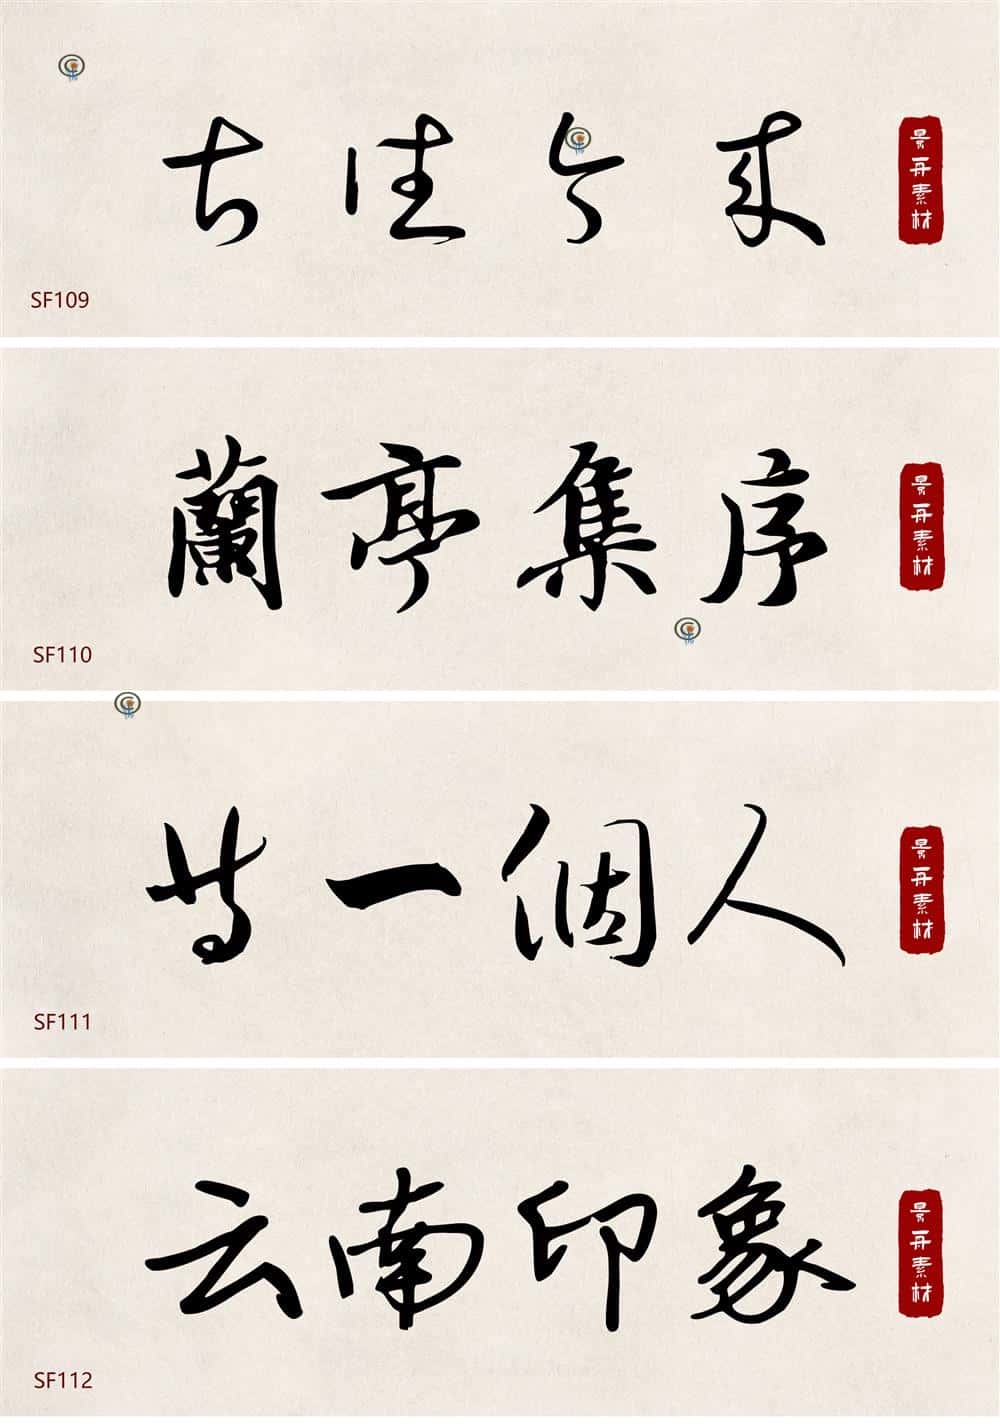 古往今来
景舟素材
SF109
蘭亭集序
景舟素材
SF110
等一個人
景舟素材
SF111
云南印象
景舟素材
SF112